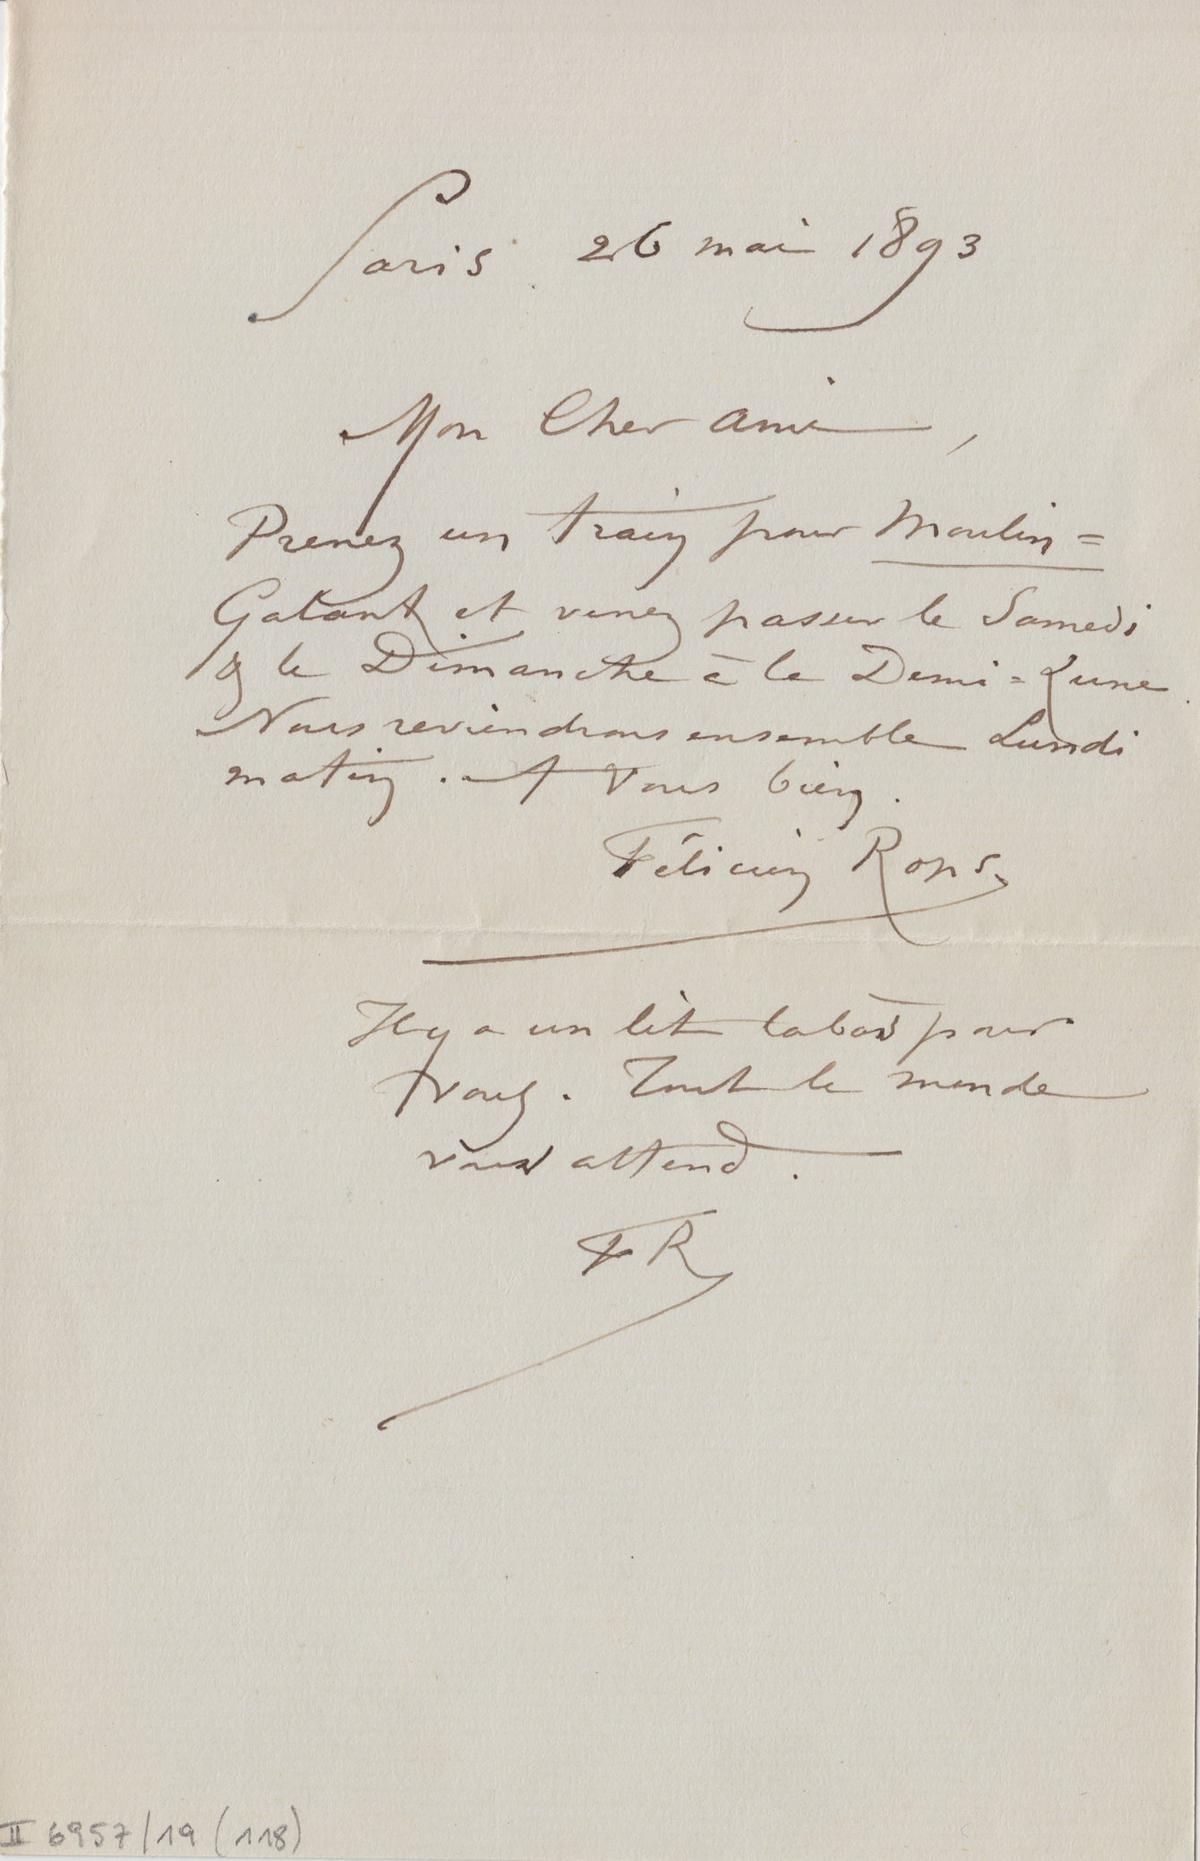 Paris. 26 mai 1893
Mon Cher ami,
Prenez un train pour Moulin=
Galant et venez passer le Samedi
& le Dimanche à la Demi=Lune.
Nous reviendrons ensemble Lundi
matin. A Vous bien.
Félicien Rops
Il y a un lit labas pour
vous. Tout le monde
vous attend.
FR
II 6957/19 (118)